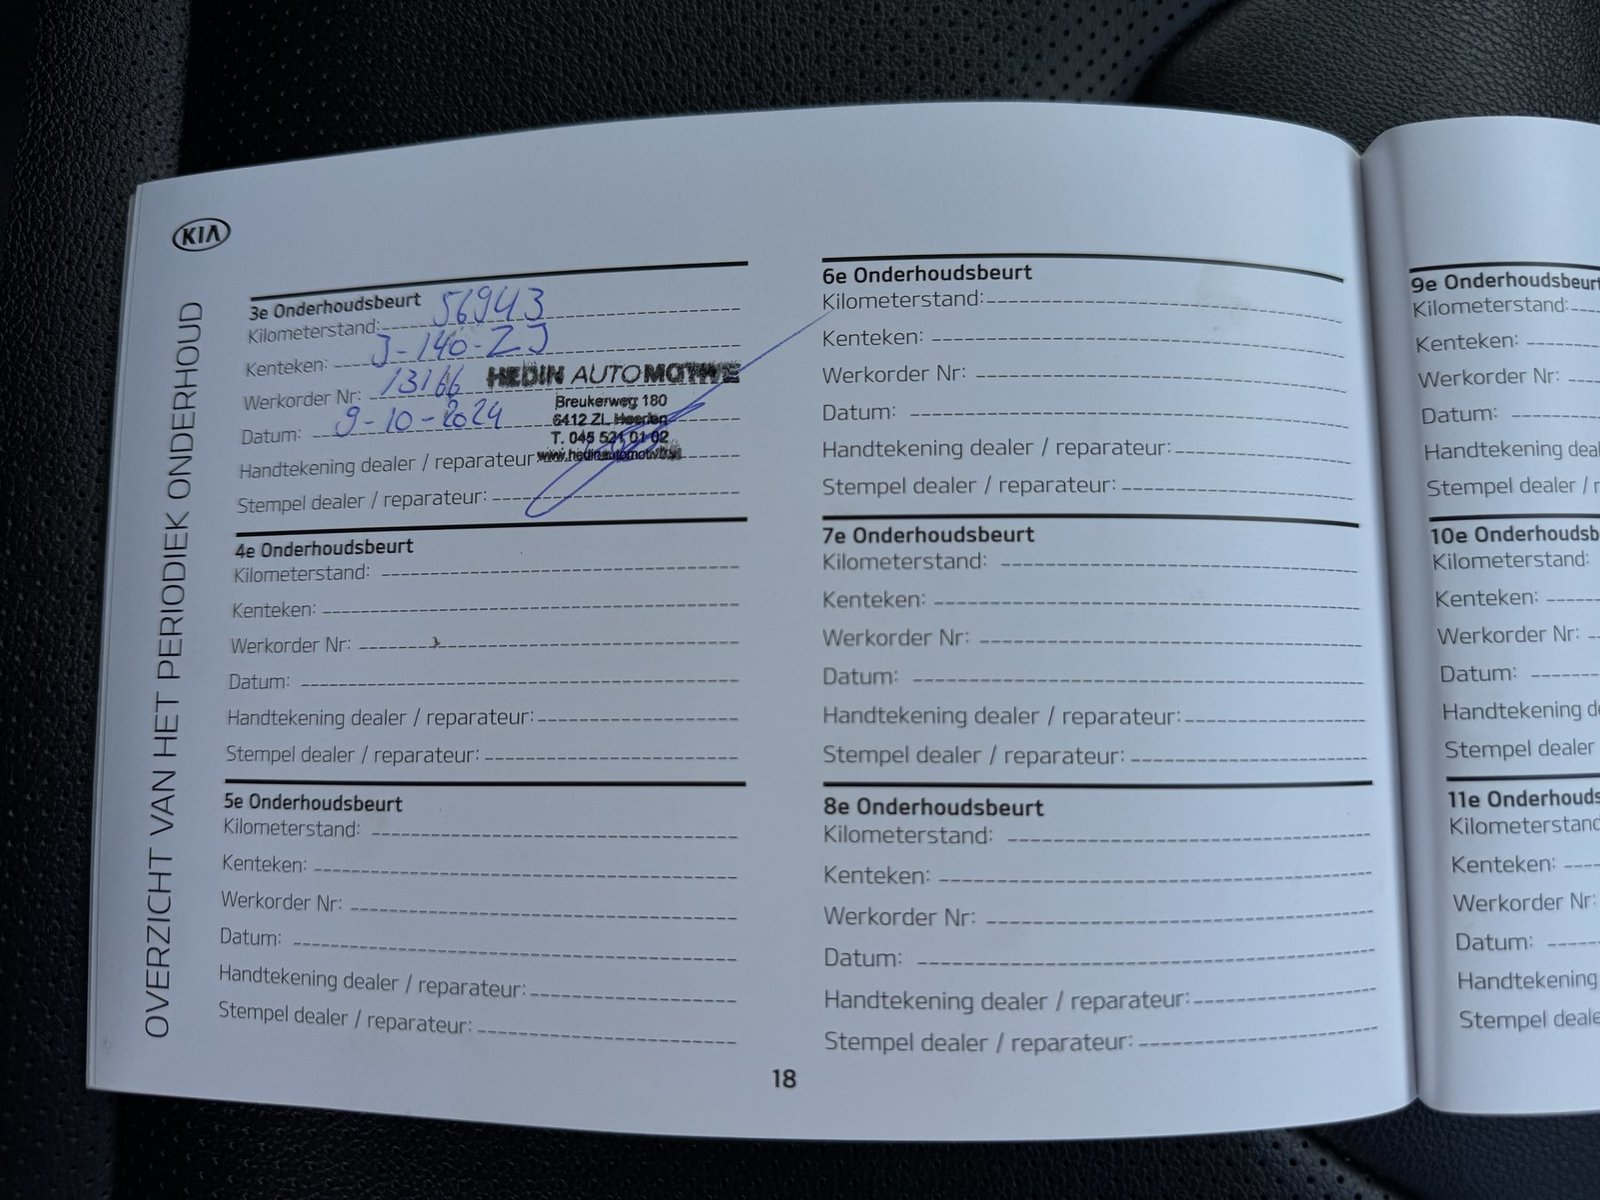 KIA
OVERZICHT VAN HET PERIODIEK ONDERHOUD
3e Onderhoudsbeurt
Kilometerstand: 56943
Kenteken: J-140-ZJ
Werkorder Nr: 13166
Datum: 9-10-2024
Handtekening dealer / reparateur:
Stempel dealer / reparateur:
HEDIN AUTOMOTIVE
Breukerweg 180
6412 ZL Heerlen
T. 045 521 01 02
4e Onderhoudsbeurt
Kilometerstand:
Kenteken:
Werkorder Nr:
Datum:
Handtekening dealer / reparateur:
Stempel dealer / reparateur:
5e Onderhoudsbeurt
Kilometerstand:
Kenteken:
Werkorder Nr:
Datum:
Handtekening dealer / reparateur:
Stempel dealer / reparateur:
6e Onderhoudsbeurt
Kilometerstand:
Kenteken:
Werkorder Nr:
Datum:
Handtekening dealer / reparateur:
Stempel dealer / reparateur:
7e Onderhoudsbeurt
Kilometerstand:
Kenteken:
Werkorder Nr:
Datum:
Handtekening dealer / reparateur:
Stempel dealer / reparateur:
8e Onderhoudsbeurt
Kilometerstand:
Kenteken:
Werkorder Nr:
Datum:
Handtekening dealer / reparateur:
Stempel dealer / reparateur:
18
9e Onderhoudsbeurt
Kilometerstand:
Kenteken:
Werkorder Nr:
Datum:
Handtekening deal
Stempel dealer / r
10e Onderhoudsb
Kilometerstand:
Kenteken:
Werkorder Nr:
Datum:
Handtekening de
Stempel dealer
11e Onderhouds
Kilometerstand
Kenteken:
Werkorder Nr:
Datum:
Handtekening
Stempel deale